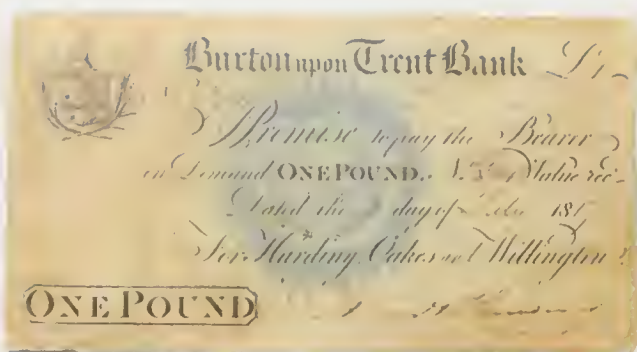 Burton upon Trent Bank £1
I Promise to pay the Bearer
on Demand ONE POUND. Value rec
Dated the day of 181
For Harding, Oakes and Willington
ONE POUND